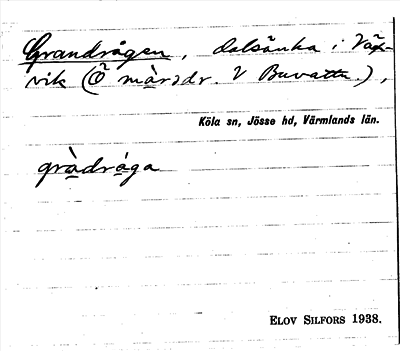 Grandrågen, dalsänka i Väx-
vik (Ö mär>dr. V Buvattn.),
Köla sn, Jösse hd, Värmlands län.
gràdrága
ELOV SILFORS 1938.